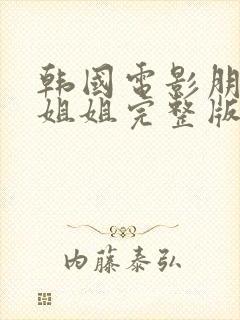 韩國電影朋
姐姐完整版
内藤泰弘